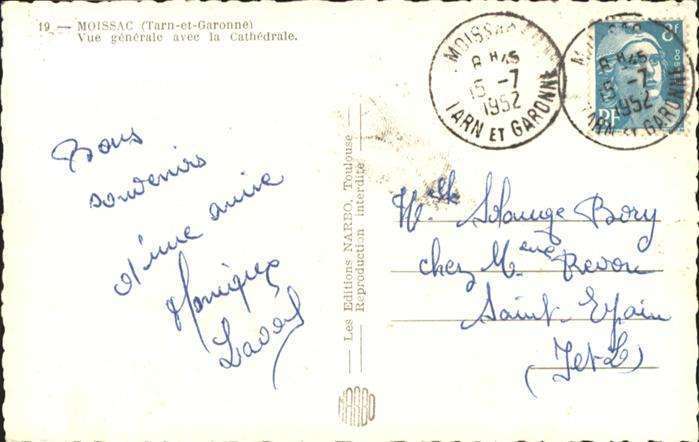 19 — MOISSAC (Tarn-et-Garonne)
Vue générale avec la Cathédrale.
Bons
souvenirs
d'une amie
Monique
— Les Editions NARBO, Toulouse —
Reproduction interdite
NARBO
MOISSAC
8 H45
15 -7
1952
TARN ET GARONNE
MOISSAC
8 H45
15 -7
1952
TARN ET GARONNE
8F
POS
8F
Melle Solange Bory
chez Mme Revon
Saint-Epain
(I et L)